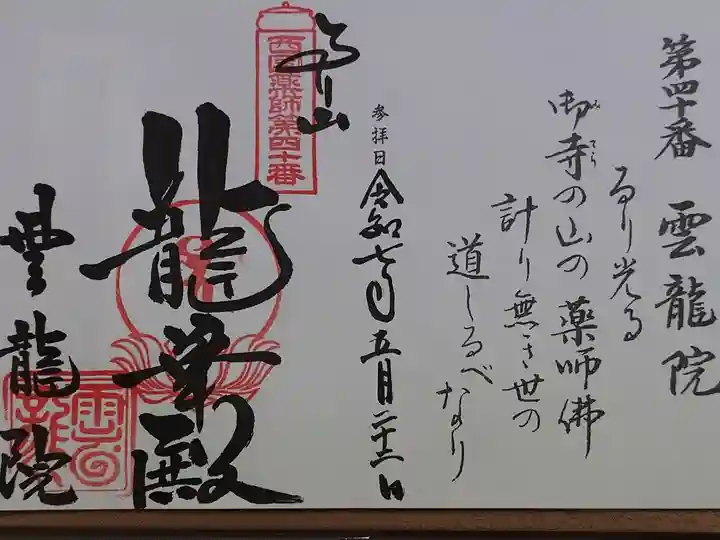 第四十番 雲龍院
るり光る
御寺の山の薬師佛
計り無き世の
道しるべなり
参拝日 令和七年五月二十二日
るり山
西国薬師第四十番
龍華殿
雲龍院